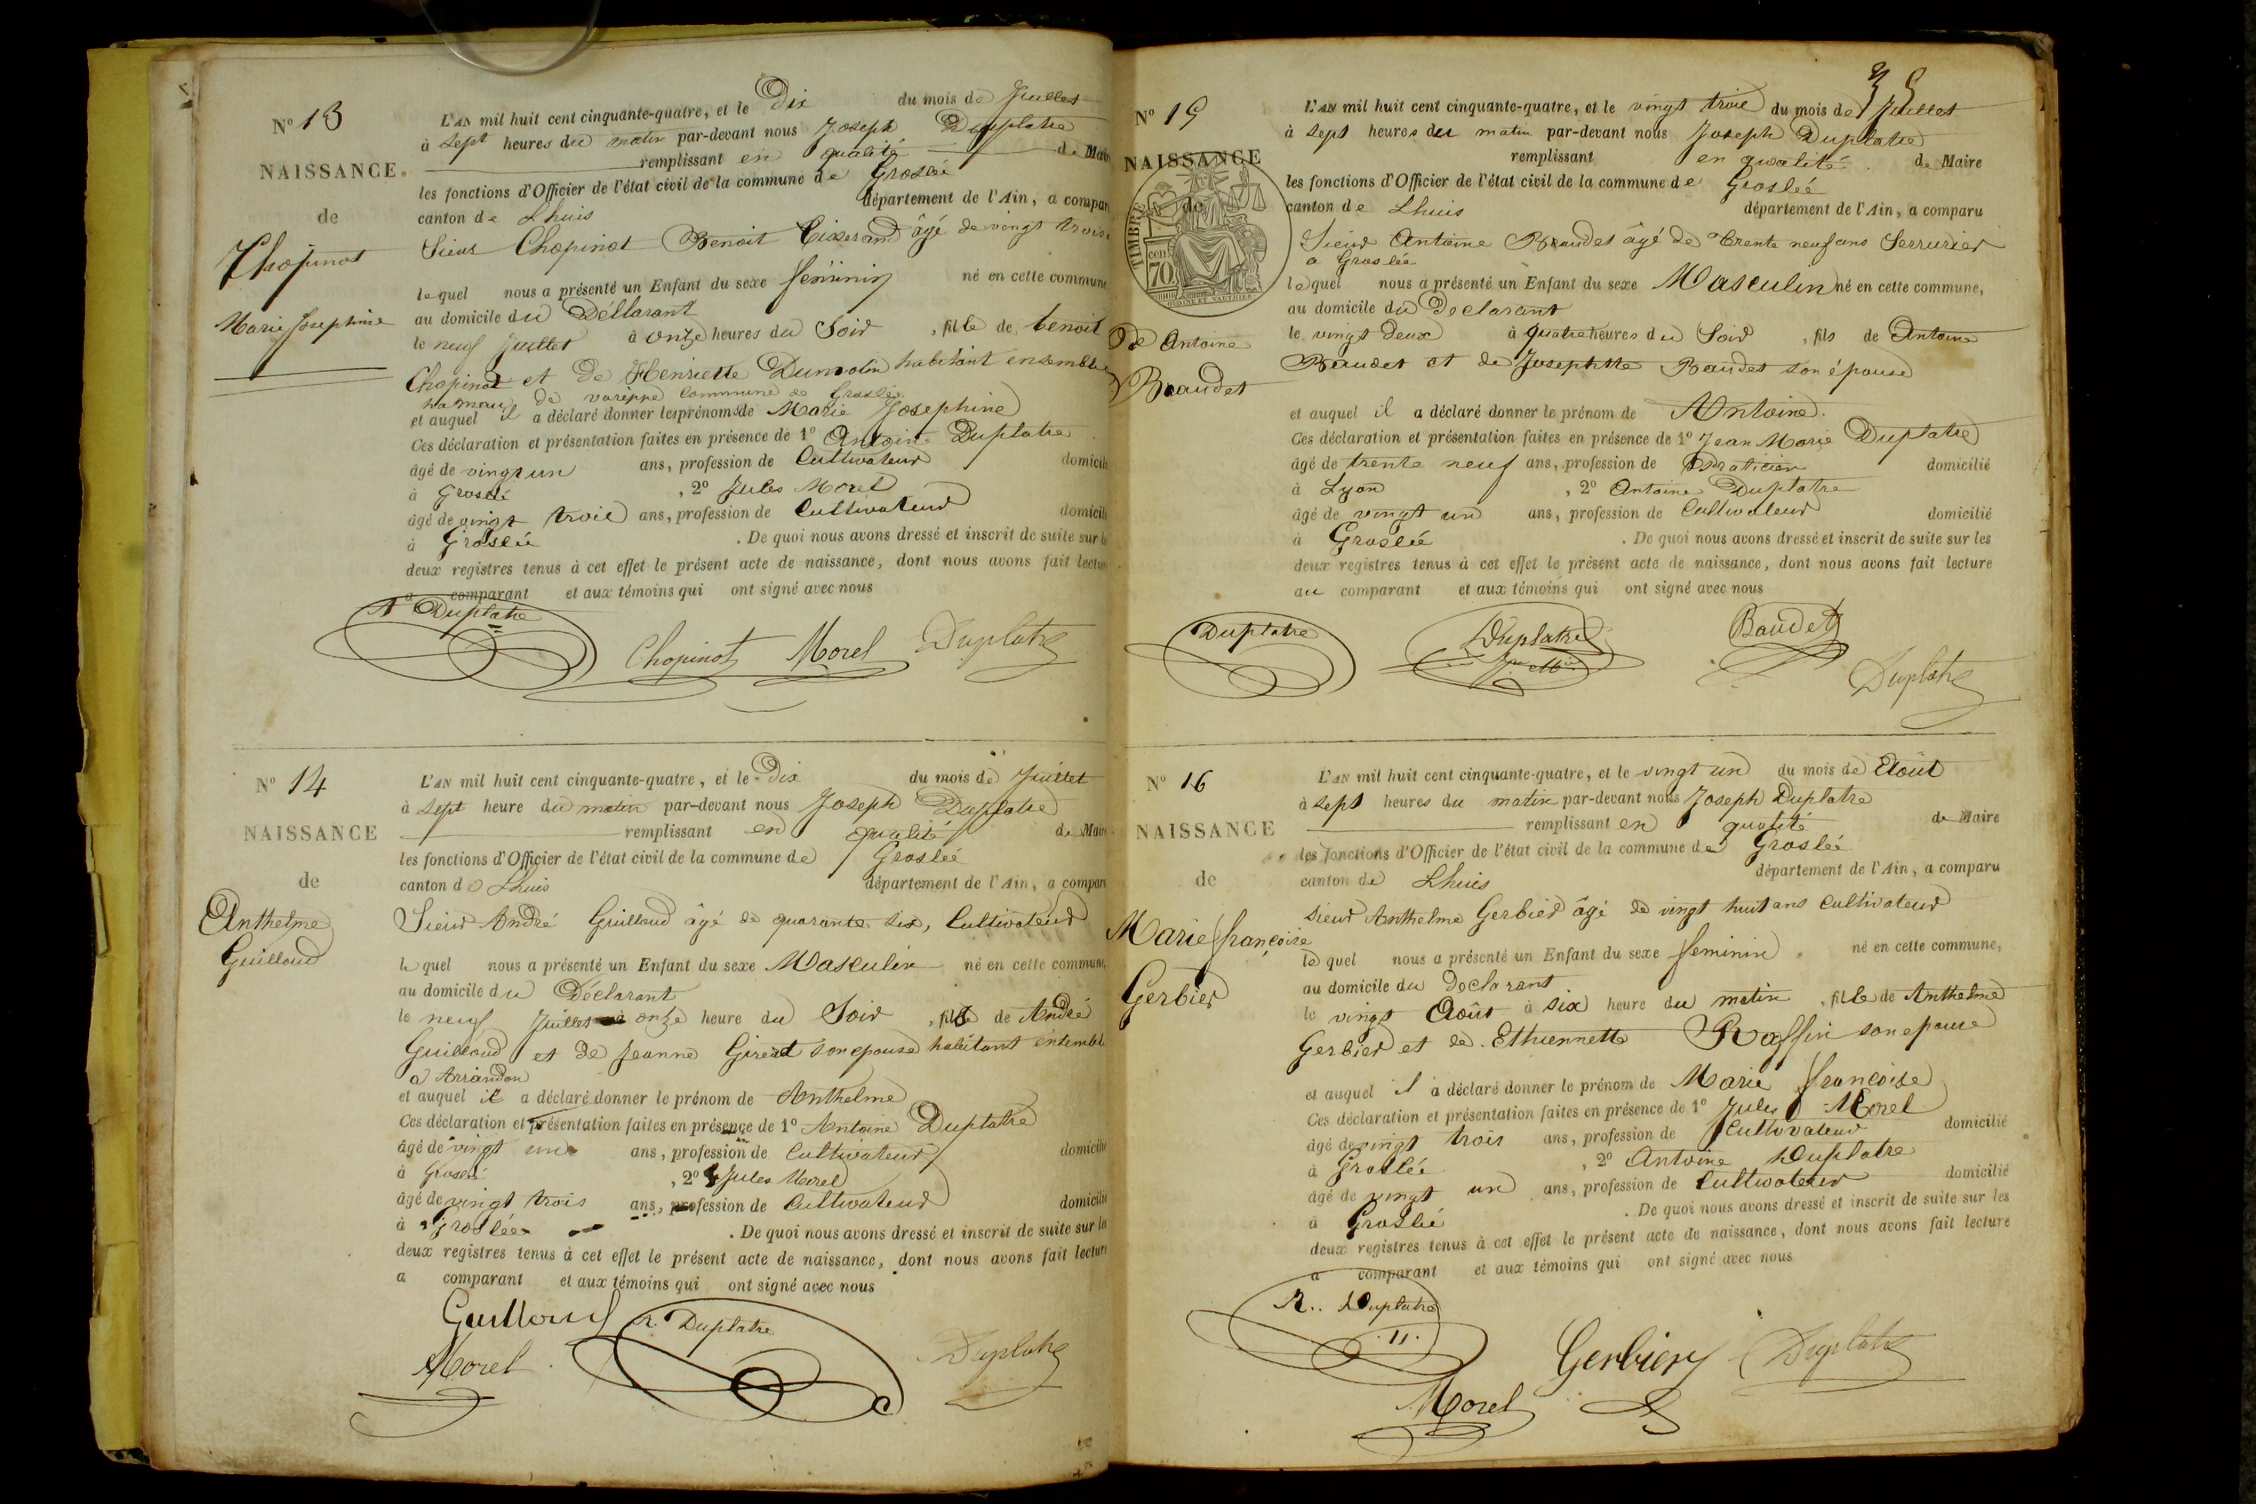 N° 13
NAISSANCE
de
Chopinot
Marie Josephine
L'AN mil huit cent cinquante-quatre, et le Dix du mois de Juillet
à sept heures du matin par-devant nous Joseph Duplatre
remplissant en qualité de Maire
les fonctions d'Officier de l'état civil de la commune de Groslée
canton de Lhuis département de l'Ain, a compar
Sieur Chopinot Benoit Tisserand âgé de vingt trois
le quel nous a présenté un Enfant du sexe feminin né en cette commune
au domicile du Déclarant
le neuf Juillet à onze heures du Soir, fille de benoit
Chopinot et de Henriette Dumolin habitant ensemble
hameau de varèppe Commune de Groslée
et auquel il a déclaré donner les prénoms de Marie Josephine
Ces déclaration et présentation faites en présence de 1° Antoine Duplatre
âgé de vingt un ans, profession de Cultivateur domicili
à Groslée, 2° Jules Morel
âgé de vingt trois ans, profession de Cultivateur domicili
à Groslée. De quoi nous avons dressé et inscrit de suite sur le
deux registres tenus à cet effet le présent acte de naissance, dont nous avons fait lectur
a comparant et aux témoins qui ont signé avec nous
A Duplatre
Chopinot Morel Duplatre
N° 14
NAISSANCE
de
Anthelme
Guilloud
L'AN mil huit cent cinquante-quatre, et le Dix du mois de Juillet
à sept heure du matin par-devant nous Joseph Duplatre
remplissant en qualité de Maire
les fonctions d'Officier de l'état civil de la commune de Groslée
canton de Lhuis département de l'Ain, a compar
Sieur André Guilloud âgé de quarante six, Cultivateur
le quel nous a présenté un Enfant du sexe Masculin né en cette commune,
au domicile du Déclarant
le neuf Juillet à onze heure du Soir, fils de André
Guilloud et de Jeanne Girerd son epouse habitant ensembl
a Arrandon
et auquel il a déclaré donner le prénom de Anthelme
Ces déclaration et présentation faites en présence de 1° Antoine Duplatre
âgé de vingt un ans, profession de Cultivateur domicili
à Groslée, 2° Jules Morel
âgé de vingt trois ans, profession de Cultivateur domicili
à Groslée. De quoi nous avons dressé et inscrit de suite sur le
deux registres tenus à cet effet le présent acte de naissance, dont nous avons fait lectur
a comparant et aux témoins qui ont signé avec nous
Guilloud A. Duplatre
Morel Duplatre
N° 15
NAISSANCE
de
TIMBRE
70
De Antoine
Baudet
L'AN mil huit cent cinquante-quatre, et le vingt trois du mois de Juillet
à sept heures du matin par-devant nous Joseph Duplatre
remplissant en qualité de Maire
les fonctions d'Officier de l'état civil de la commune de Groslée
canton de Lhuis département de l'Ain, a comparu
Sieur Antoine Baudet âgé de trente neuf ans Serrurier
a Groslée
le quel nous a présenté un Enfant du sexe Masculin né en cette commune,
au domicile du Declarant
le vingt deux à quatre heures du Soir, fils de Antoine
Baudet et de Josephtte Baudet son épouse
et auquel il a déclaré donner le prénom de Antoine.
Ces déclaration et présentation faites en présence de 1° Jean Marie Duplatre
âgé de trente neuf ans, profession de Praticien domicilié
à Lyon, 2° Antoine Duplatre
âgé de vingt un ans, profession de Cultivateur domicilié
à Groslée. De quoi nous avons dressé et inscrit de suite sur les
deux registres tenus à cet effet le présent acte de naissance, dont nous avons fait lecture
au comparant et aux témoins qui ont signé avec nous
Duplatre Duplatre Baudet
Duplatre
N° 16
NAISSANCE
de
Marie françoise
Gerbier
L'AN mil huit cent cinquante-quatre, et le vingt un du mois de Août
à sept heures du matin par-devant nous Joseph Duplatre
remplissant en qualité de Maire
les fonctions d'Officier de l'état civil de la commune de Groslée
canton de Lhuis département de l'Ain, a comparu
Sieur Anthelme Gerbier âgé de vingt huit ans Cultivateur
le quel nous a présenté un Enfant du sexe feminin né en cette commune,
au domicile du Declarant
le vingt Août à six heure du matin, fille de Anthelme
Gerbier et de Ethiennette Roffin son epouse
et auquel il a déclaré donner le prénom de Marie françoise
Ces déclaration et présentation faites en présence de 1° Jules Morel
âgé de vingt trois ans, profession de Cultivateur domicilié
à Groslée, 2° Antoine Duplatre
âgé de vingt un ans, profession de Cultivateur domicilié
à Groslée. De quoi nous avons dressé et inscrit de suite sur les
deux registres tenus à cet effet le présent acte de naissance, dont nous avons fait lecture
a comparant et aux témoins qui ont signé avec nous
A. Duplatre
Gerbier Duplatre
Morel